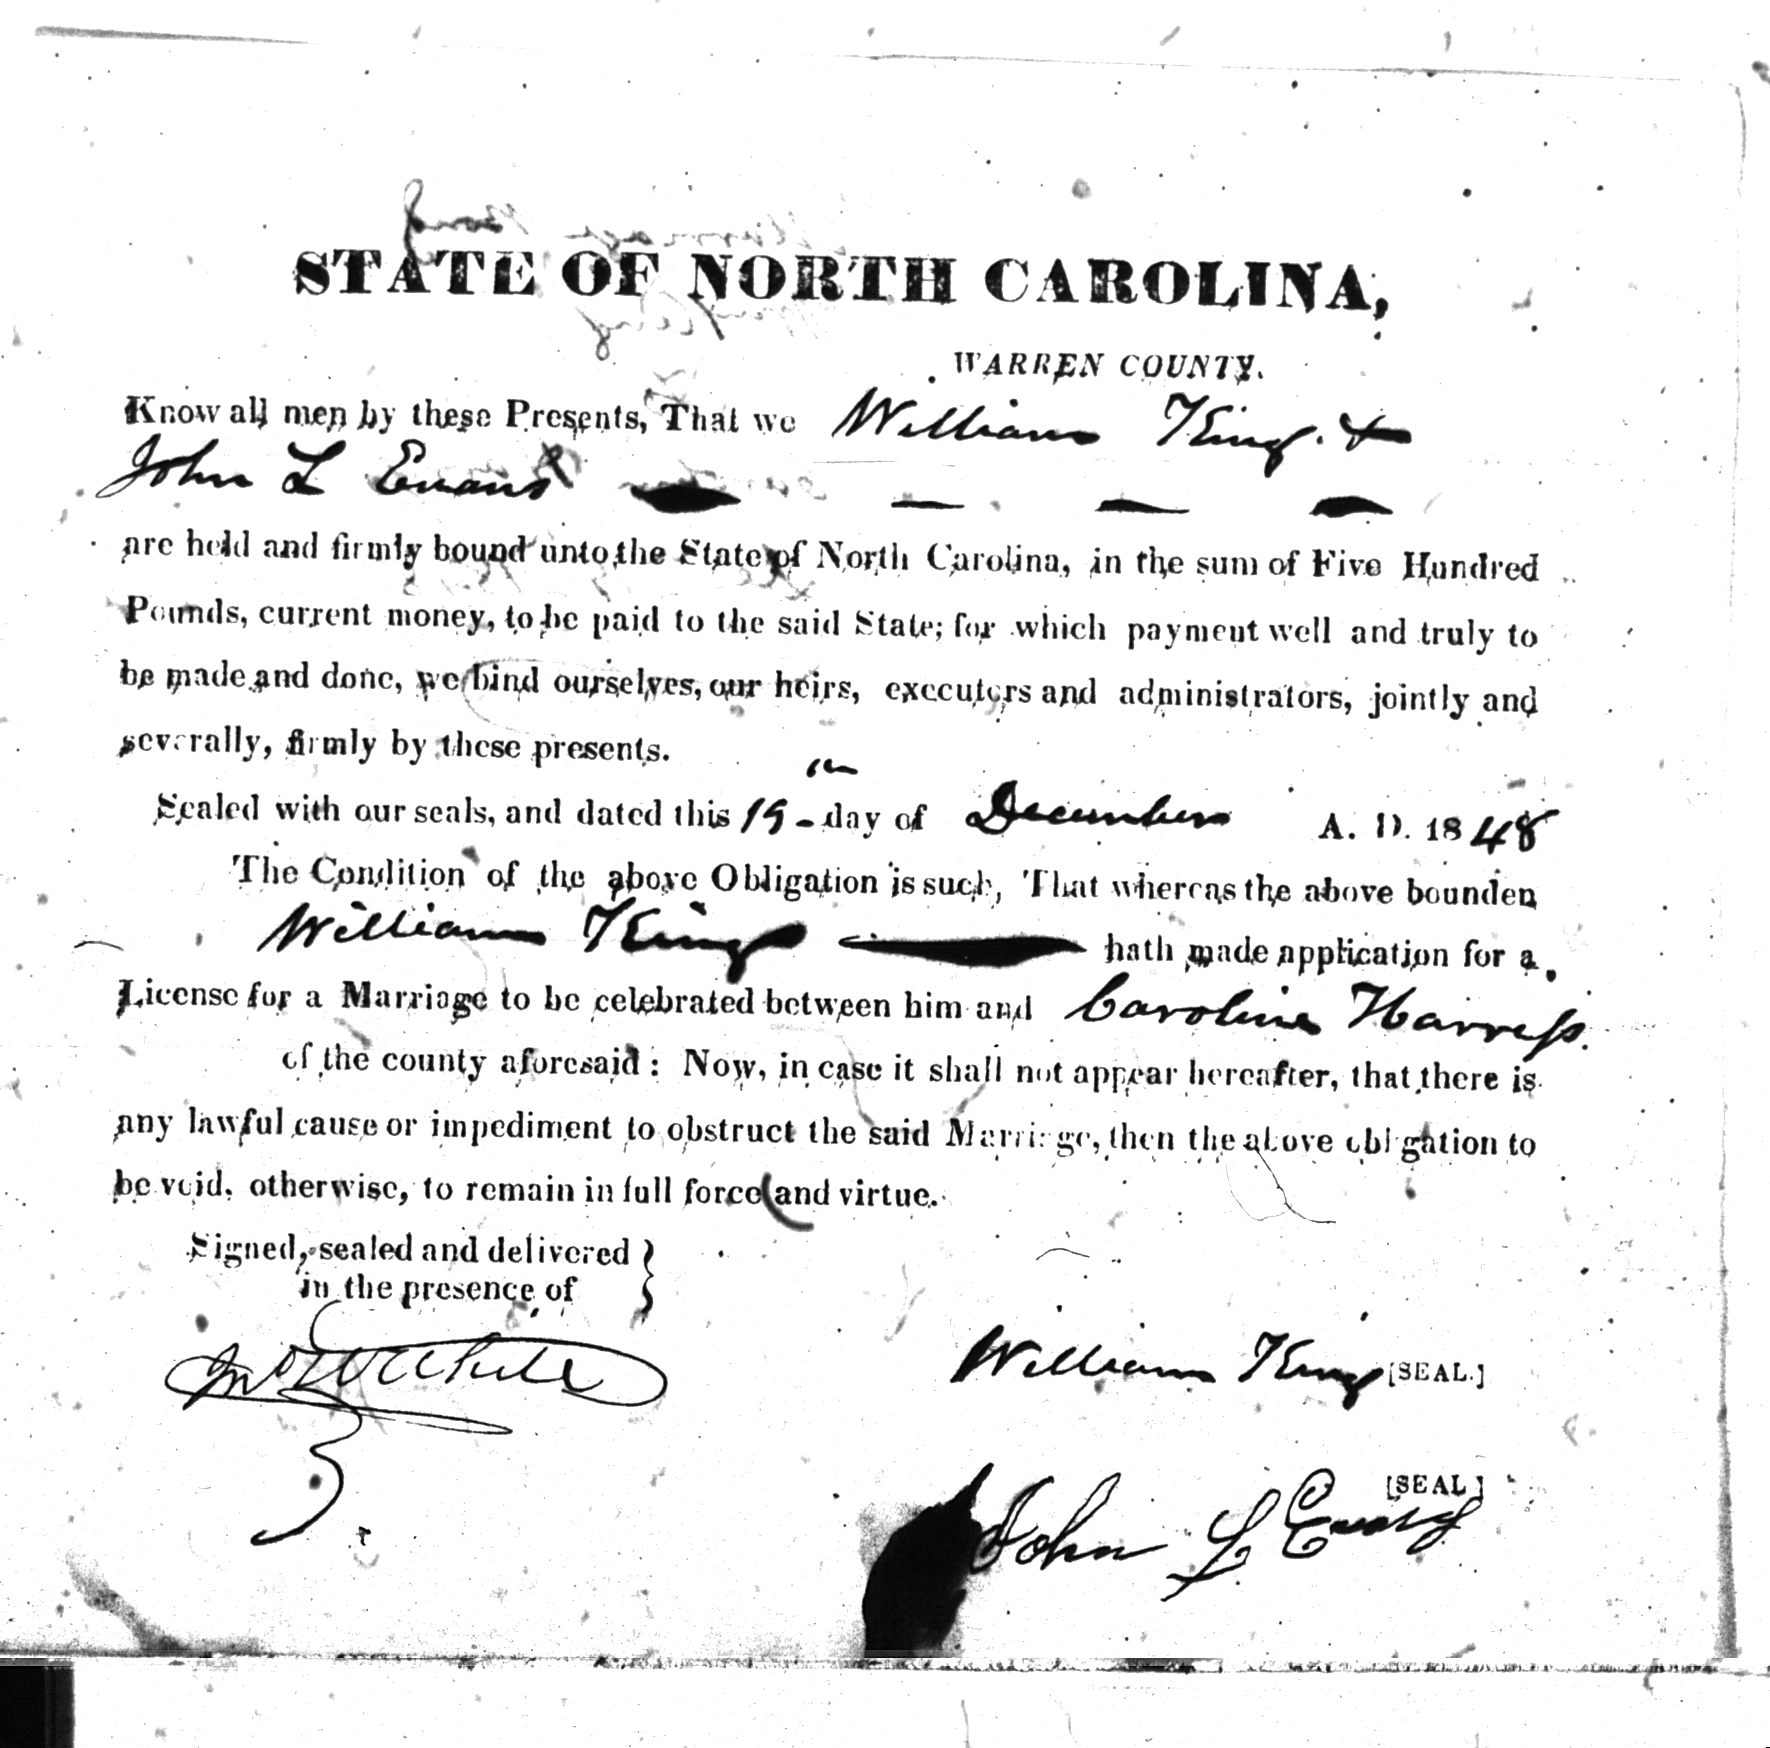 STATE OF NORTH CAROLINA,
WARREN COUNTY.
Know all men by these Presents, That we William King &
John L Evans
are held and firmly bound unto the State of North Carolina, in the sum of Five Hundred
Pounds, current money, to be paid to the said State; for which payment well and truly to
be made and done, we bind ourselves, our heirs, executors and administrators, jointly and
severally, firmly by these presents.
Sealed with our seals, and dated this 19th day of December A. D. 1848
The Condition of the above Obligation is such, That whereas the above bounden
William King hath made application for a
License for a Marriage to be celebrated between him and Caroline Harress.
of the county aforesaid: Now, in case it shall not appear hereafter, that there is
any lawful cause or impediment to obstruct the said Marriage, then the above obligation to
be void, otherwise, to remain in full force and virtue.
Signed, sealed and delivered
in the presence of
Jno W White
William King [SEAL.]
[SEAL]
John L Evans